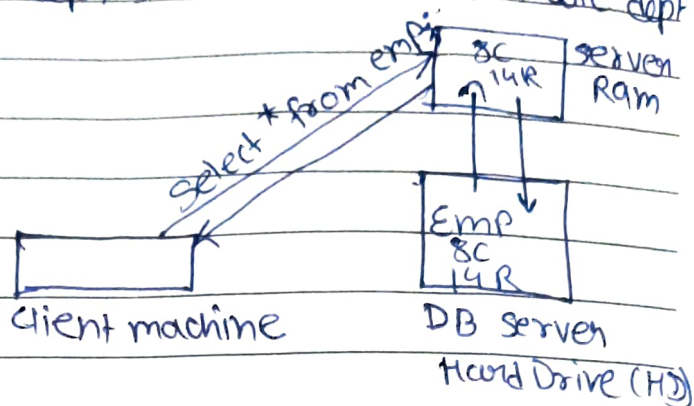 dept
Select * from emp;
8C
14R
Server
Ram
Emp
8C
14R
Client machine
DB Server
Hard Drive (HD)